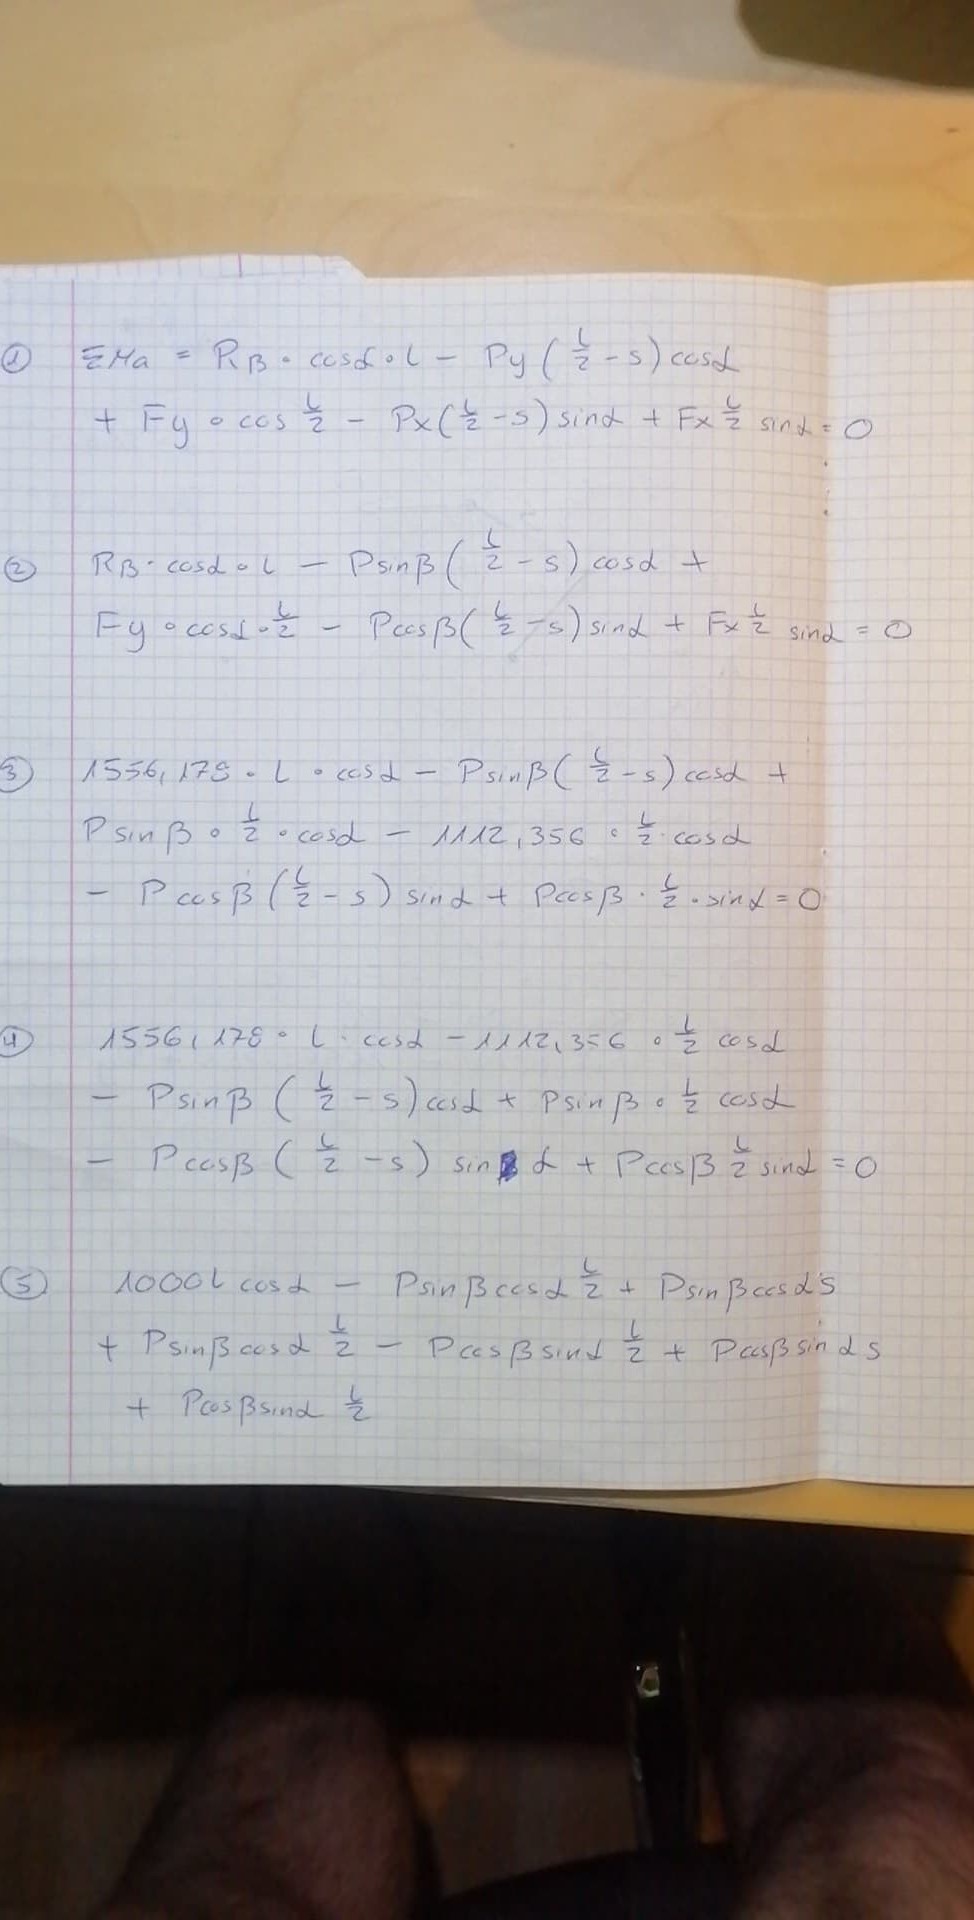 ① ΣMa = RB · cosα · L − Py (L/2 − s) cosα
+ Fy · cos L/2 − Px (L/2 − s) sinα + Fx L/2 sinα = 0
② RB · cosα · L − Psinβ (L/2 − s) cosα +
Fy · cosα · L/2 − Pcosβ (L/2 − s) sinα + Fx L/2 sinα = 0
③ 1556,178 · L · cosα − Psinβ (L/2 − s) cosα +
Psinβ · L/2 · cosα − 1112,356 · L/2 · cosα
− Pcosβ (L/2 − s) sinα + Pcosβ · L/2 · sinα = 0
④ 1556,178 · L · cosα − 1112,356 · L/2 cosα
− Psinβ (L/2 − s) cosα + Psinβ · L/2 cosα
− Pcosβ (L/2 − s) sin α + Pcosβ L/2 sinα = 0
⑤ 1000L cosα − Psinβcosα L/2 + Psinβcosα s
+ Psinβcosα L/2 − Pcosβsinα L/2 + Pcosβsinα s
+ Pcosβsinα L/2